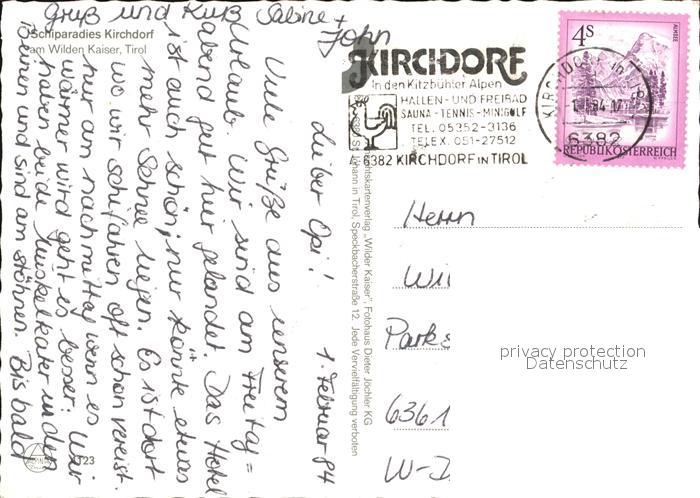 Schiparadies Kirchdorf
am Wilden Kaiser, Tirol
1. Februar 84
Lieber Opi!
Viele Grüße aus unserem
Urlaub. Wir sind am Freitag=
abend gut hier gelandet. Das Hotel
ist auch schön, nur könnte etwas
mehr Schnee liegen. Es ist dort
wo wir schifahren oft schon vereist.
nur am nachmittag wenn es
wärmer wird geht es besser. Wir
haben beide Muskelkater in den
Beinen und sind am stöhnen. Bis bald
Gruß und Kuß Sabine +
John
Ansichtskartenverlag „Wilder Kaiser", Fotohaus Dieter Jöchler KG
St. Johann in Tirol, Speckbacherstraße 12. Jede Vervielfältigung verboten
KIRCHDORF
in den Kitzbühler Alpen
HALLEN- UND FREIBAD
SAUNA - TENNIS - MINIGOLF
TEL. 05352-3136
TELEX. 051-27512
6382 KIRCHDORF IN TIROL
4S
ALMSEE
KIRCHDORF in
84
6382
REPUBLIK ÖSTERREICH
Herrn
Wil
Parks
6361
W-D
privacy protection
Datenschutz
723